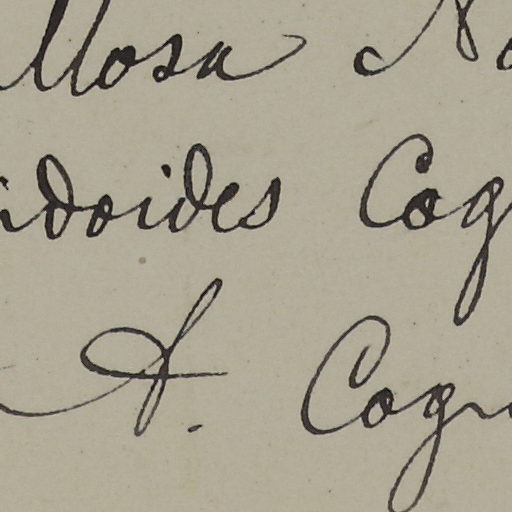 llosa N
idoides Cog
A. Cogn